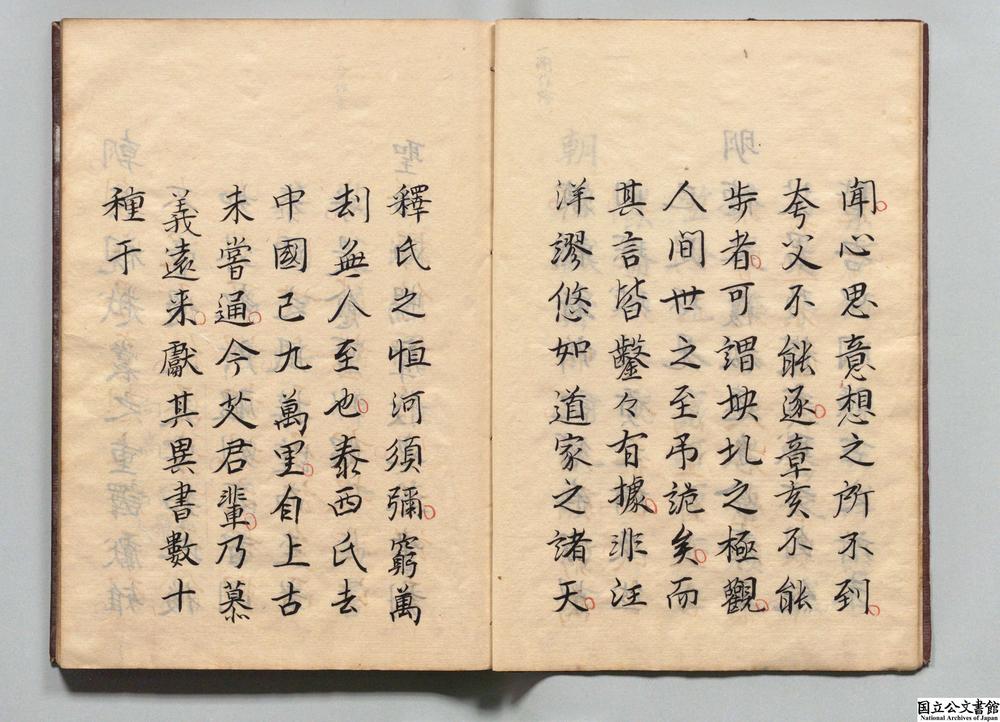 聞心思意想之所不到
夸父不能逐章亥不能
步者可謂坱圠之極觀
人間世之至吊詭矣而
其言皆鑿々有據非汪
洋謬悠如道家之諸天
釋氏之恒河須彌窮萬
刼無人至也泰西氏去
中國已九萬里自上古
未嘗通今艾君輩乃慕
義遠来獻其異書數十
種于
国立公文書館
National Archives of Japan